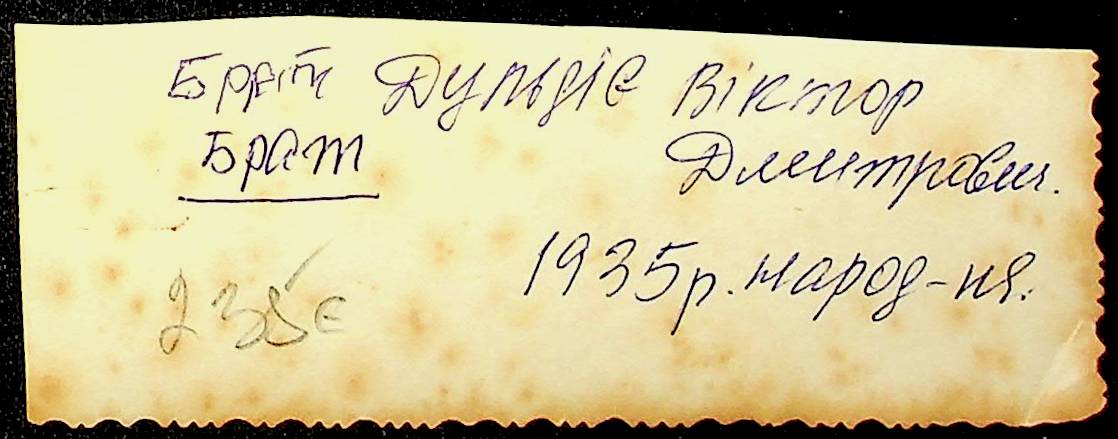 Брат Дульдіє Віктор
Брат Дмитрович.
1935р. народ-ня.
235є